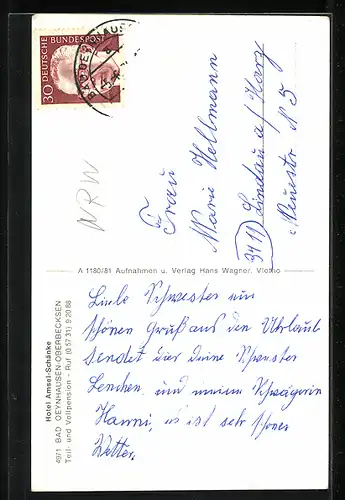 DEUTSCHE BUNDESPOST
30
NRW
Frau
Marie Hellmann
3411) Lindau a/Harz
Neuestr N 5
A 1180/81 Aufnahmen u. Verlag Hans Wagner, Vlotho
Hotel Amsel-Schänke
4971 BAD OEYNHAUSEN-OBERBECKSEN
Teil- und Vollpension - Ruf (0 57 31) 9 20 68
Liebe Schwester ein
schönen Gruß aus den Uhrlaub
sendet dier deine Schwester
Lenchen und meine Schwägerin
Hanni, es ist sehr schönes
Wetter.